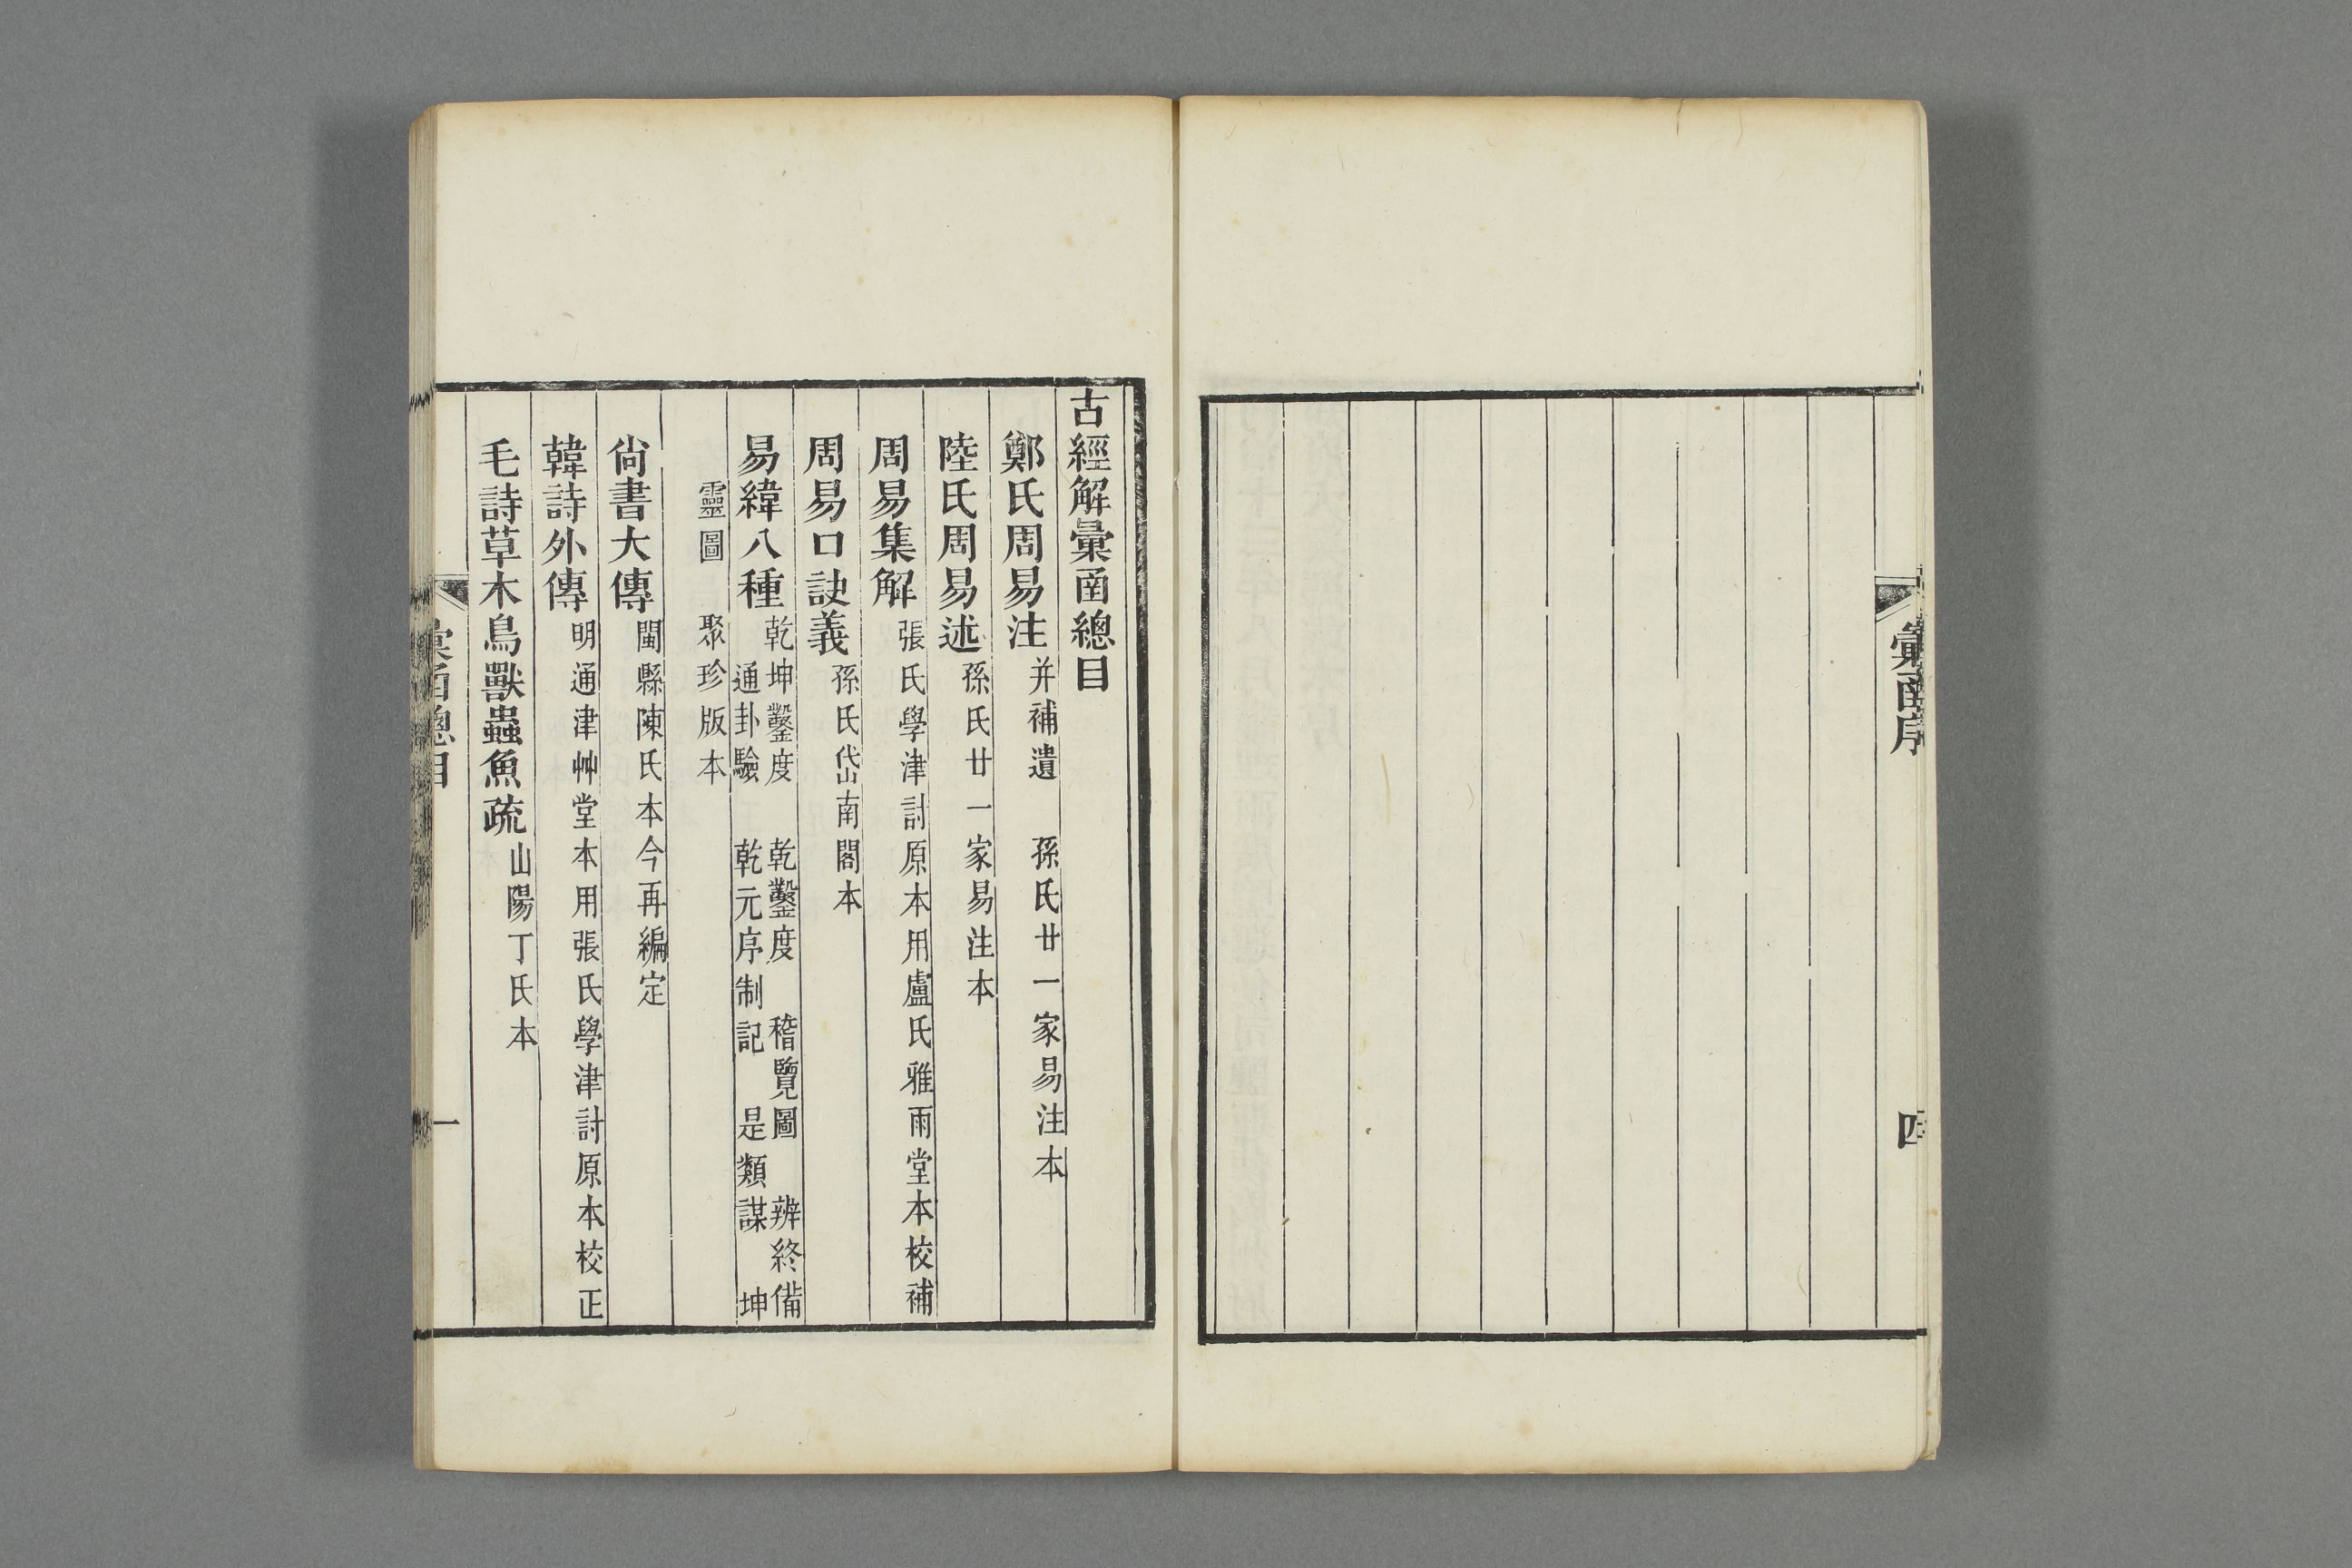 彙函序
四
古經解彙函總目
鄭氏周易注 并補遺 孫氏廿一家易注本
陸氏周易述 孫氏廿一家易注本
周易集解 張氏學津討原本用盧氏雅雨堂本校補
周易口訣義 孫氏岱南閣本
易緯八種 乾坤鑿度 乾鑿度 稽覽圖 辨終備
通卦驗 乾元序制記 是類謀 坤
靈圖 聚珍版本
尙書大傳 閩縣陳氏本今再編定
韓詩外傳 明通津艸堂本用張氏學津討原本校正
毛詩草木鳥獸蟲魚疏 山陽丁氏本
彙函總目
一